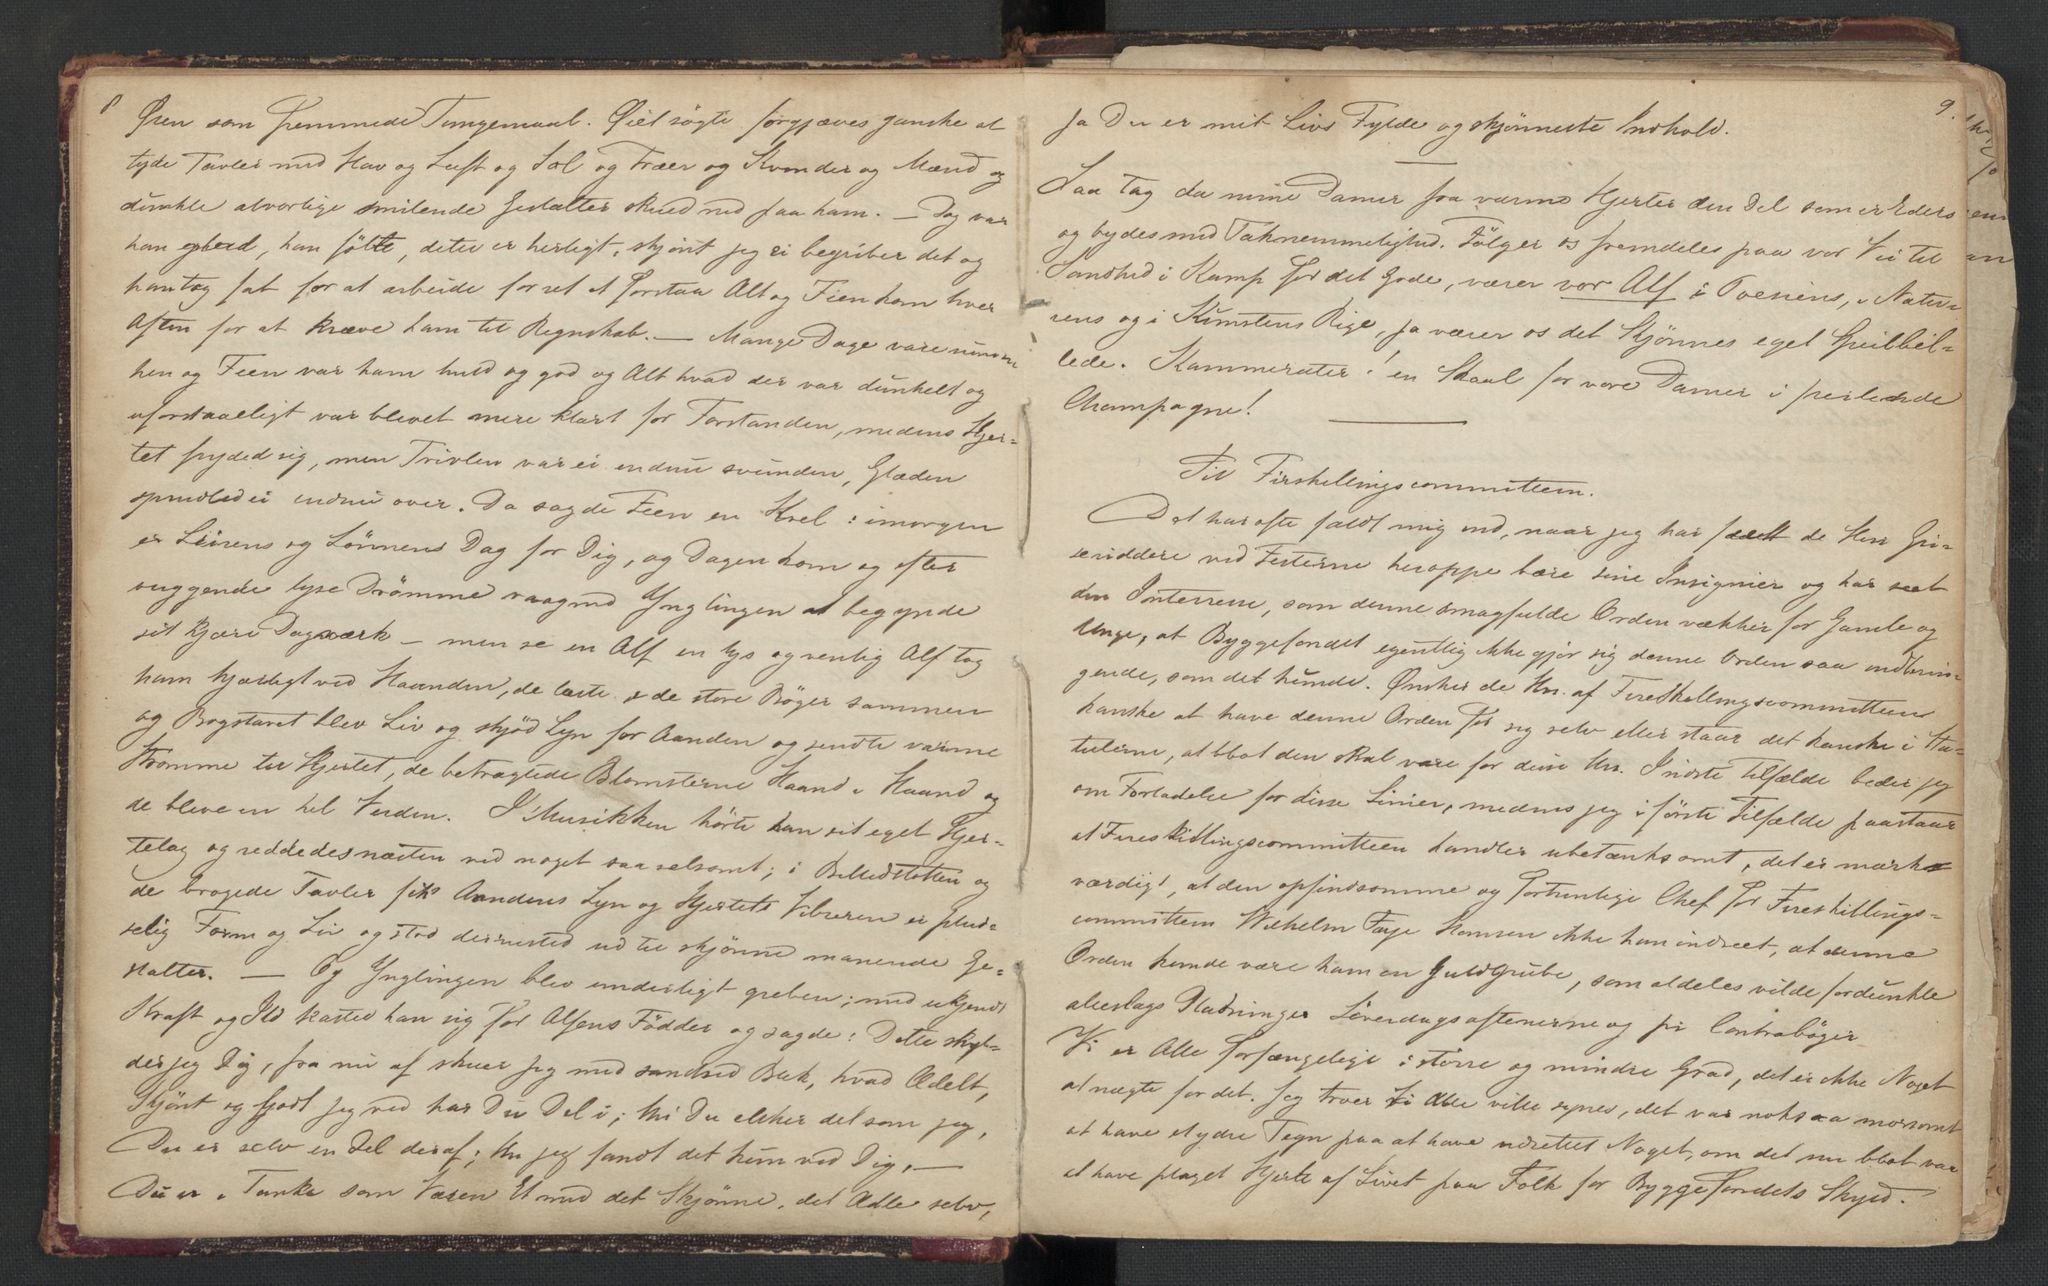 8
Øren som fremmede Tungemaal. Øiet søgte forgjæves ganske at
tyde Tavler med Hav og Luft og Sol og Træer og Kvinder og Mænd og
dunkle alvorlige smilende Gestalter skued ned paa ham. — Dog var
han glad, han følte, dette er herligt, skjönt jeg ei begriber det og
han tog fat for at arbeide for ret at forstaa Alt og Feen kom hver
Aften for at kræve ham til Regnskab. — Mange Dage vare nu svun
hen og Feen var ham huld og god og Alt hvad der var dunkelt og
uforstaaeligt var blevet mere klart for Forstanden, medens Hjer-
tet fryded sig, men Tvivlen var ei endnu svunden, Glæden
sprudled ei endnu over. Da sagde Feen en Kvel: imorgen
er Seirens og Lønnens Dag for Dig, og Dagen kom og efter
vuggende lyse Drömme vaagned Ynglingen at begynde
sit kjære Dagværk — men se en Alf en lys og venlig Alf tog
ham kjærligt ved Haanden, de læste i de store Bøger sammen
og Bogstavet blev Liv og skjød Lyn for Aanden og sendte varme
Strømme til Hjertet, de betragtede Blomsterne Haand i Haand og
de bleve en hel Verden. I Musikken hörte han sit eget Hjer-
teslag og reddedes næsten ved noget saa selsomt; i Billedstøtten og
de brogede Tavler fik Aandens Lyn og Hjertets Vibreren en plud-
selig Form og Liv og stod dernæst ud til skjønne manende Ge-
stalter. — Og Ynglingen blev underligt greben; med ukjendt
Kraft og Ild kasted han sig for Alfens Födder og sagde: Dette skyl-
der jeg Dig, fra nu af skuer jeg med sandsed Blik, hvad Ædelt,
Skjönt og Godt jeg ved har Du Del i; thi Du elsker det som jeg,
Du er selv en Del deraf; thi jeg fandt det kun ved Dig, —
Du er i Tanke som Væren Et med det Skjønne, det Ædle selv,
9.
Ja Du er mit Livs Fylde og skjønneste Indhold.
Saa tag da mine Damer fra varme Hjerter den Del som er Eders
og bydes med Taknemmelighed. Følger os fremdeles paa vor Vei til
Sandhed i Kamp for det Gode, værer vor Alf i Poesiens, i Natu-
rens og i Kunstens Rige, ja værer os det Skjønnes eget Speilbil-
lede. Kammerater! en Skaal for vore Damer i perlende
Champagne!
Til Firskillingscommitteen.
Det har ofte faldt mig ind, naar jeg har seet de Herr Gri-
seriddere ved Festerne heroppe bære sine Insignier og har seet
den Interresse, som denne smagfulde Orden vækker for Gamle og
Unge, at Byggefondet egentlig ikke gjør sig denne Orden saa indbrin-
gende, som det kunde. Ønsker de Hrr. af Fireskillingscommitteen
kanske at have denne Orden for sig selv eller staar det kanske i Sta-
tuterne, at blot den skal være for disse Hrr. I sidste Tilfælde beder jeg
om Forladelse for disse Linier, medens jeg i første Tilfælde paastaar
at Fireskillingscommitteen handler ubetænksomt, det er mærk
værdigt, at den opfindsomme og fortrinlige Chef for Fireskillings-
committeen Wilhelm Faye Hansen ikke har indseet, at denne
Orden kunde være ham en Guldgrube, som aldeles vilde fordunkle
alleslags Pladninger Löverdagsaftenerne og pr Contrabøger
Vi er Alle forfængelige i större og mindre Grad, det er ikke Noget
at nægte for det. Jeg troer vi Alle ville synes, det var nok saa morsomt
at have et ydre Tegn paa at have udrettet Noget, om det nu blot var
at have plaget Hjerte af Livet paa Folk for Byggefondets Skyld.